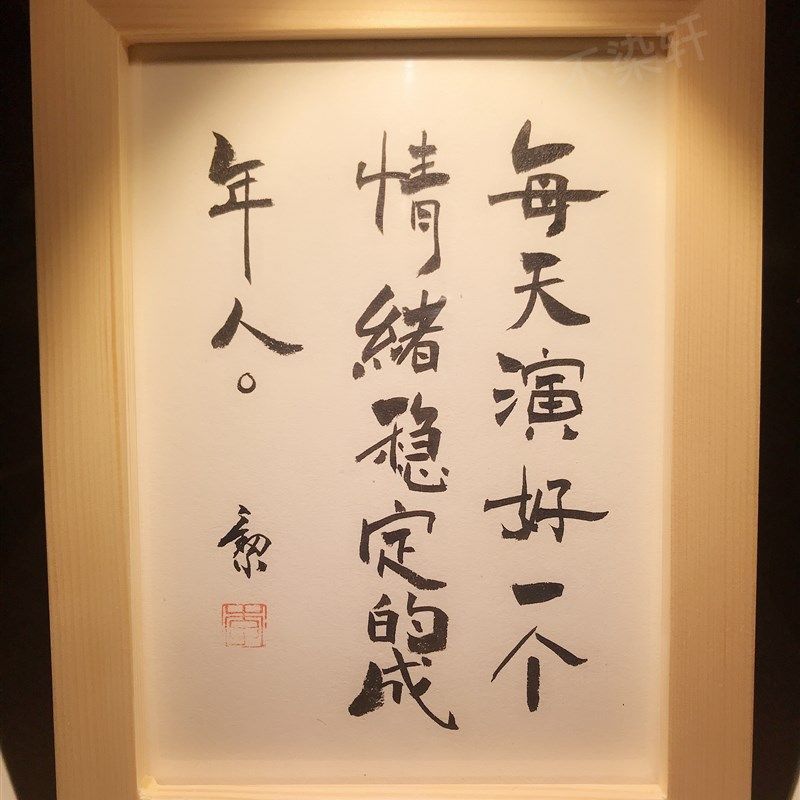 每天演好一个
情緒稳定的成
年人。
不染轩